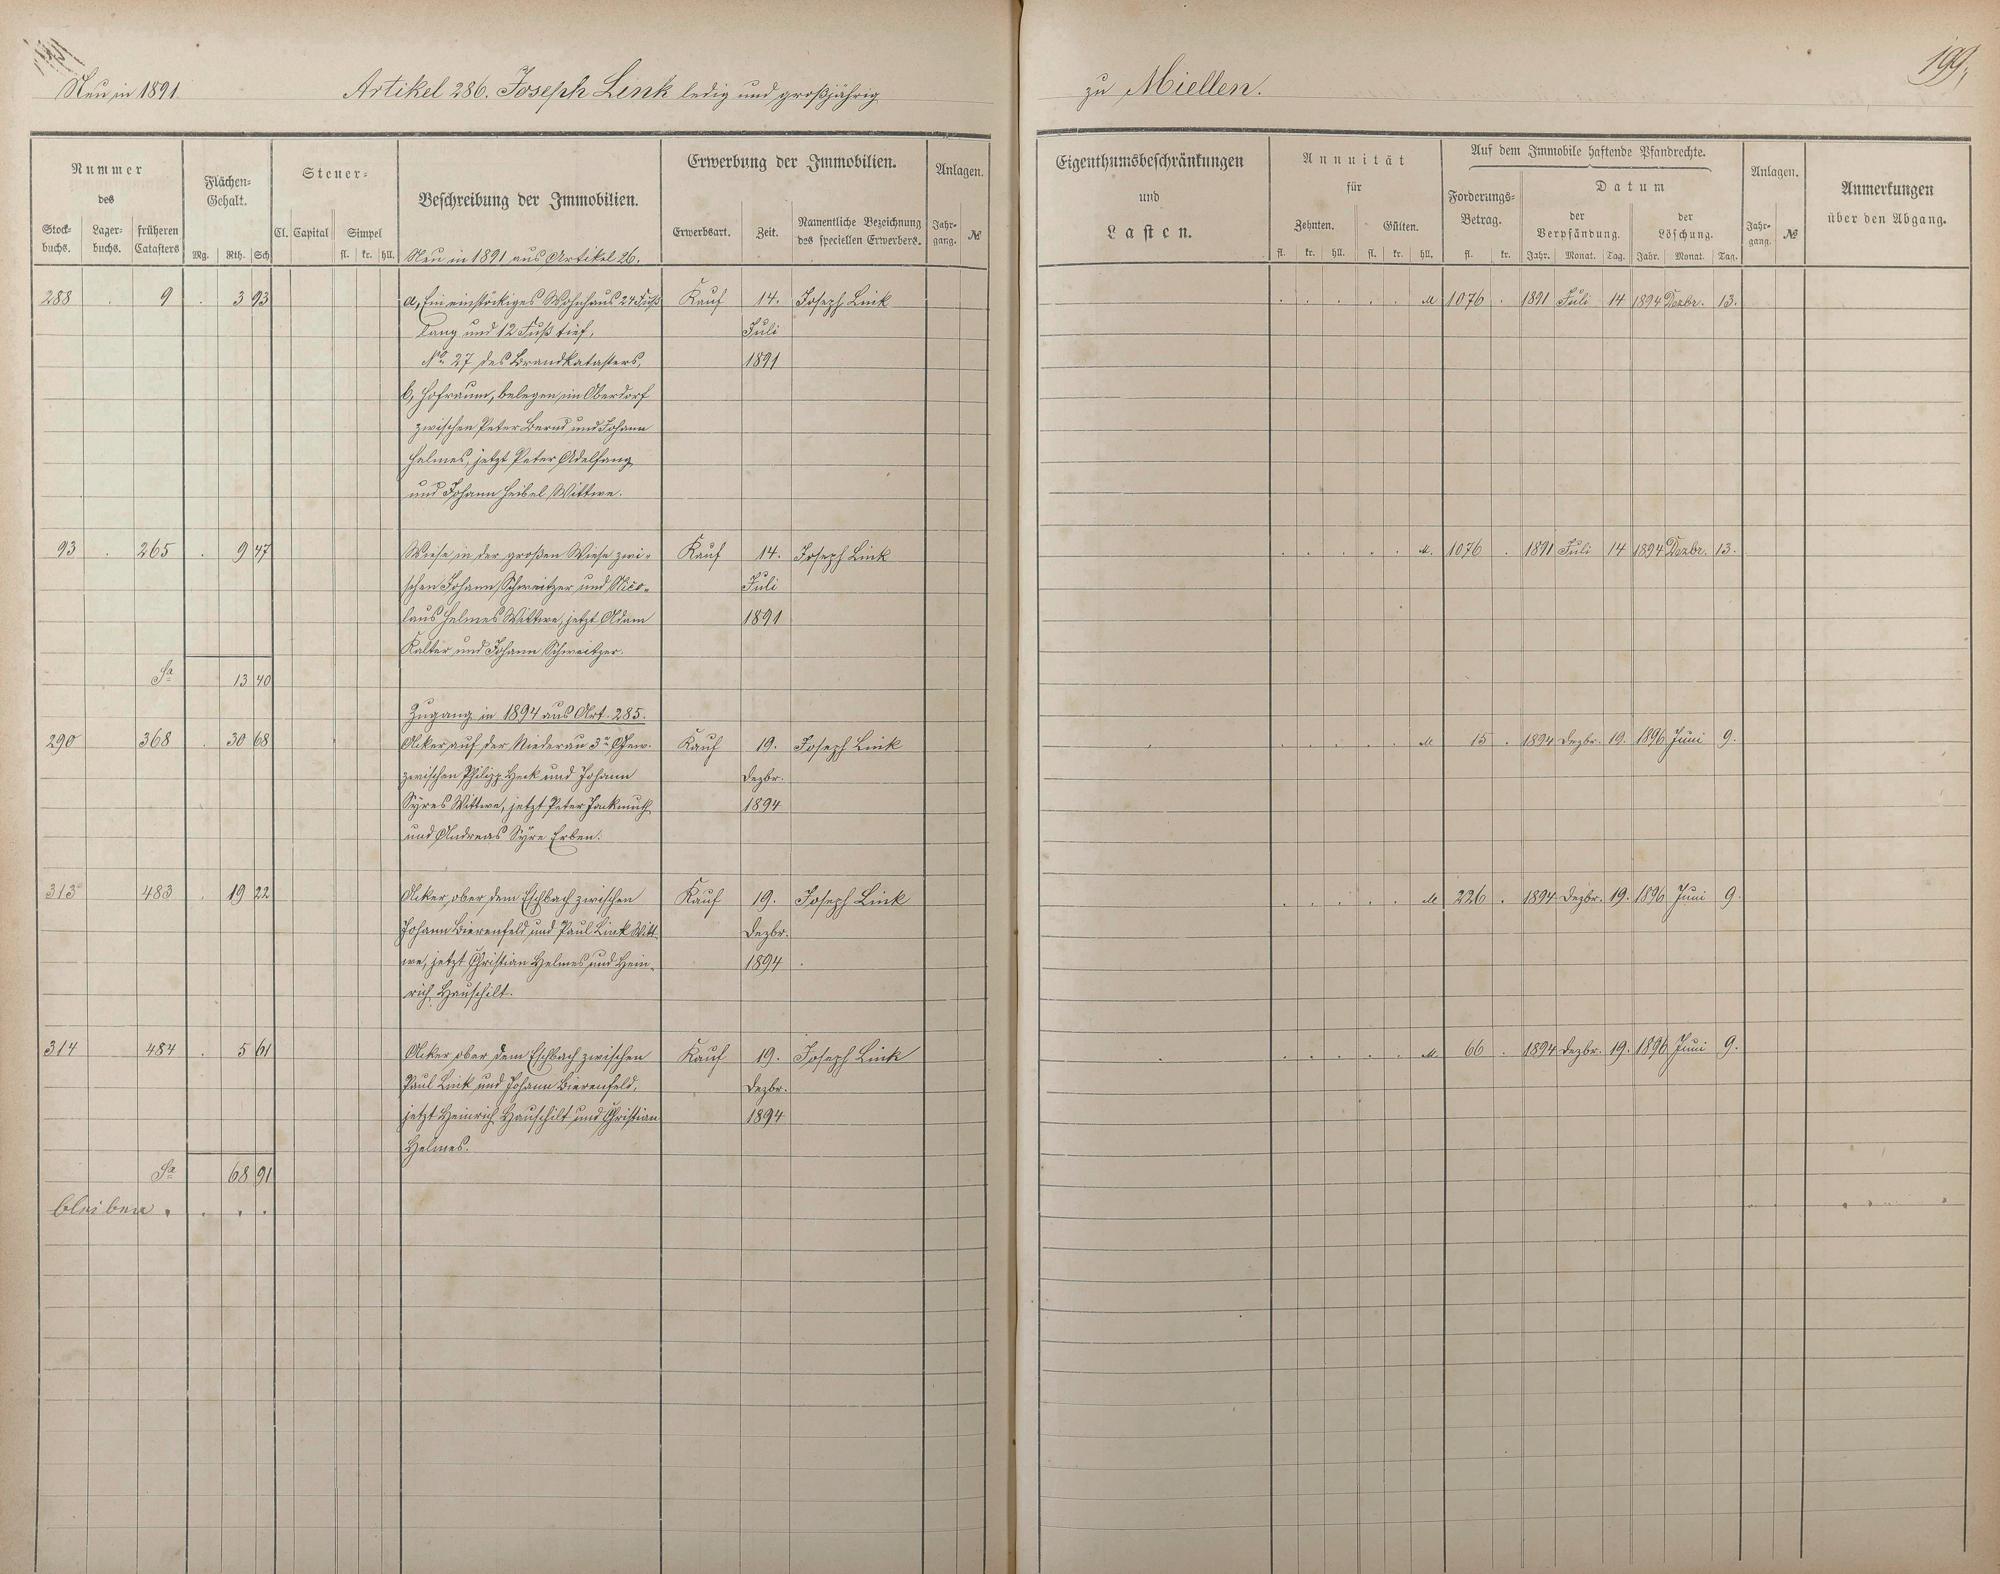 Neu in 1891
Artikel 286. Joseph Link ledig und großjährig
zu Miellen.
199.
Nummer
des
Stock-
buchs.
Lager-
buchs.
früheren
Catasters
Flächen-
Gehalt.
Mg. Rth. Sch
Steuer-
Cl. Capital Simpel
fl. kr. hll.
Beschreibung der Immobilien.
Erwerbung der Immobilien.
Erwerbsart. Zeit.
Namentliche Bezeichnung
des speciellen Erwerbers.
Anlagen.
Jahr-
gang. №
Eigenthumsbeschränkungen
und
Lasten.
Annuität
für
Zehnten. Gülten.
fl. kr. hll. fl. kr. hll.
Auf dem Immobile haftende Pfandrechte.
Forderungs-
Betrag.
fl. kr.
Datum
der
Verpfändung.
Jahr. Monat. Tag.
der
Löschung.
Jahr. Monat. Tag.
Anlagen.
Jahr-
gang. №
Anmerkungen
über den Abgang.
Neu in 1891 aus Artikel 26.
288 . 9 . 3 93 a, Ein einstöckiges Wohnhaus 24 Fuß Kauf 14. Joseph Link M 1076 . 1891 Juli 14 1894 Dezbr. 13.
lang und 12 Fuß tief, Juli
No 27 des Brandkatasters, 1891
b, Hofraum, belegen im Oberdorf
zwischen Peter Bernd und Johann
Helmes, jetzt Peter Adelfang
und Johann Heibel Wittwe.
93 . 265 . 9 47 Wiese in der großen Wiese zwi- Kauf 14. Joseph Link M. 1076 . 1891 Juli 14 1894 Dezbr. 13.
schen Johann Schweitzer und Nico- Juli
laus Helmes Wittwe, jetzt Adam 1891
Kalter und Johann Schweitzer.
Sa 13 40
Zugang in 1894 aus Art. 285.
290 368 . 30 68 Acker auf der Niederau 3r Gew. Kauf 19. Joseph Link M 15 . 1894 Dezbr. 19. 1896 Juni 9.
zwischen Philipp Heck und Johann Dezbr.
Syres Wittwe, jetzt Peter Hackmuth 1894
und Andreas Syre Erben.
313 483 . 19 22 Acker ober dem Eschbach zwischen Kauf 19. Joseph Link M 226 . 1894 Dezbr. 19. 1896 Juni 9.
Johann Bierenfeld und Paul Link Witt- Dezbr.
we, jetzt Christian Helmes und Hein- 1894
rich Hauschilt.
314 484 . 5 61 Acker ober dem Eschbach zwischen Kauf 19. Joseph Link M. 66 . 1894 Dezbr. 19. 1896 Juni 9.
Paul Link und Johann Bierenfeld, Dezbr.
jetzt Heinrich Hauschilt und Christian 1894
Helmes.
Sa 68 91
bleiben . . . .